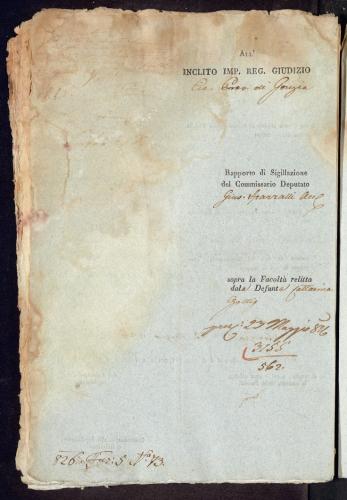 ALL'
INCLITO IMP. REG. GIUDIZIO
Civ. Prov. di Gorizia
Rapporto di Sigillazione
del Commissario Deputato
Gius.
sopra la Facoltà relitta
dala Defunta Cattarina
23 Maggio 826
3155
562.
826. Fas: 5 N.º 73.